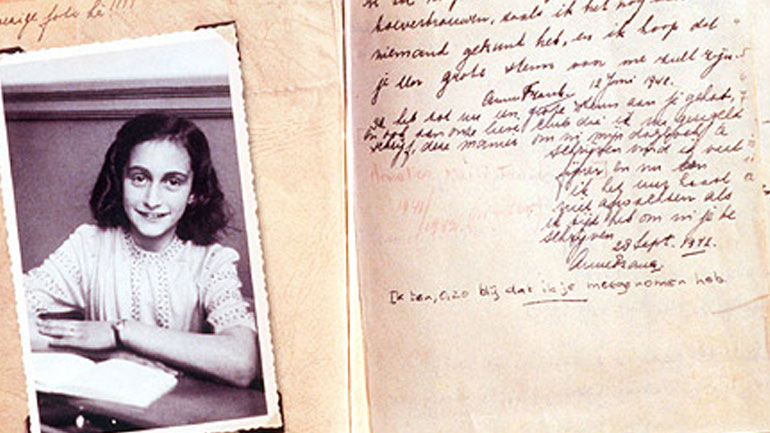 foto hè!!!!
zoals ik het nog
niemand gekund heb, en ik hoop dat
je een grote steun voor me zult zijn.
Anne Frank 12 Juni 1942.
Ik heb tot nu een grote steun aan je gehad,
en ook aan onze lieve club die ik nu geregeld
schrijf, deze manier om in mijn dagboek te
schrijven vind ik veel
fijner en nu kan
ik het uur haast
niet afwachten als
ik tijd heb om in je te
schrijven.
28 Sept. 1942.
Anne Frank
Ik ben, o, zo blij dat ik je meegenomen heb.